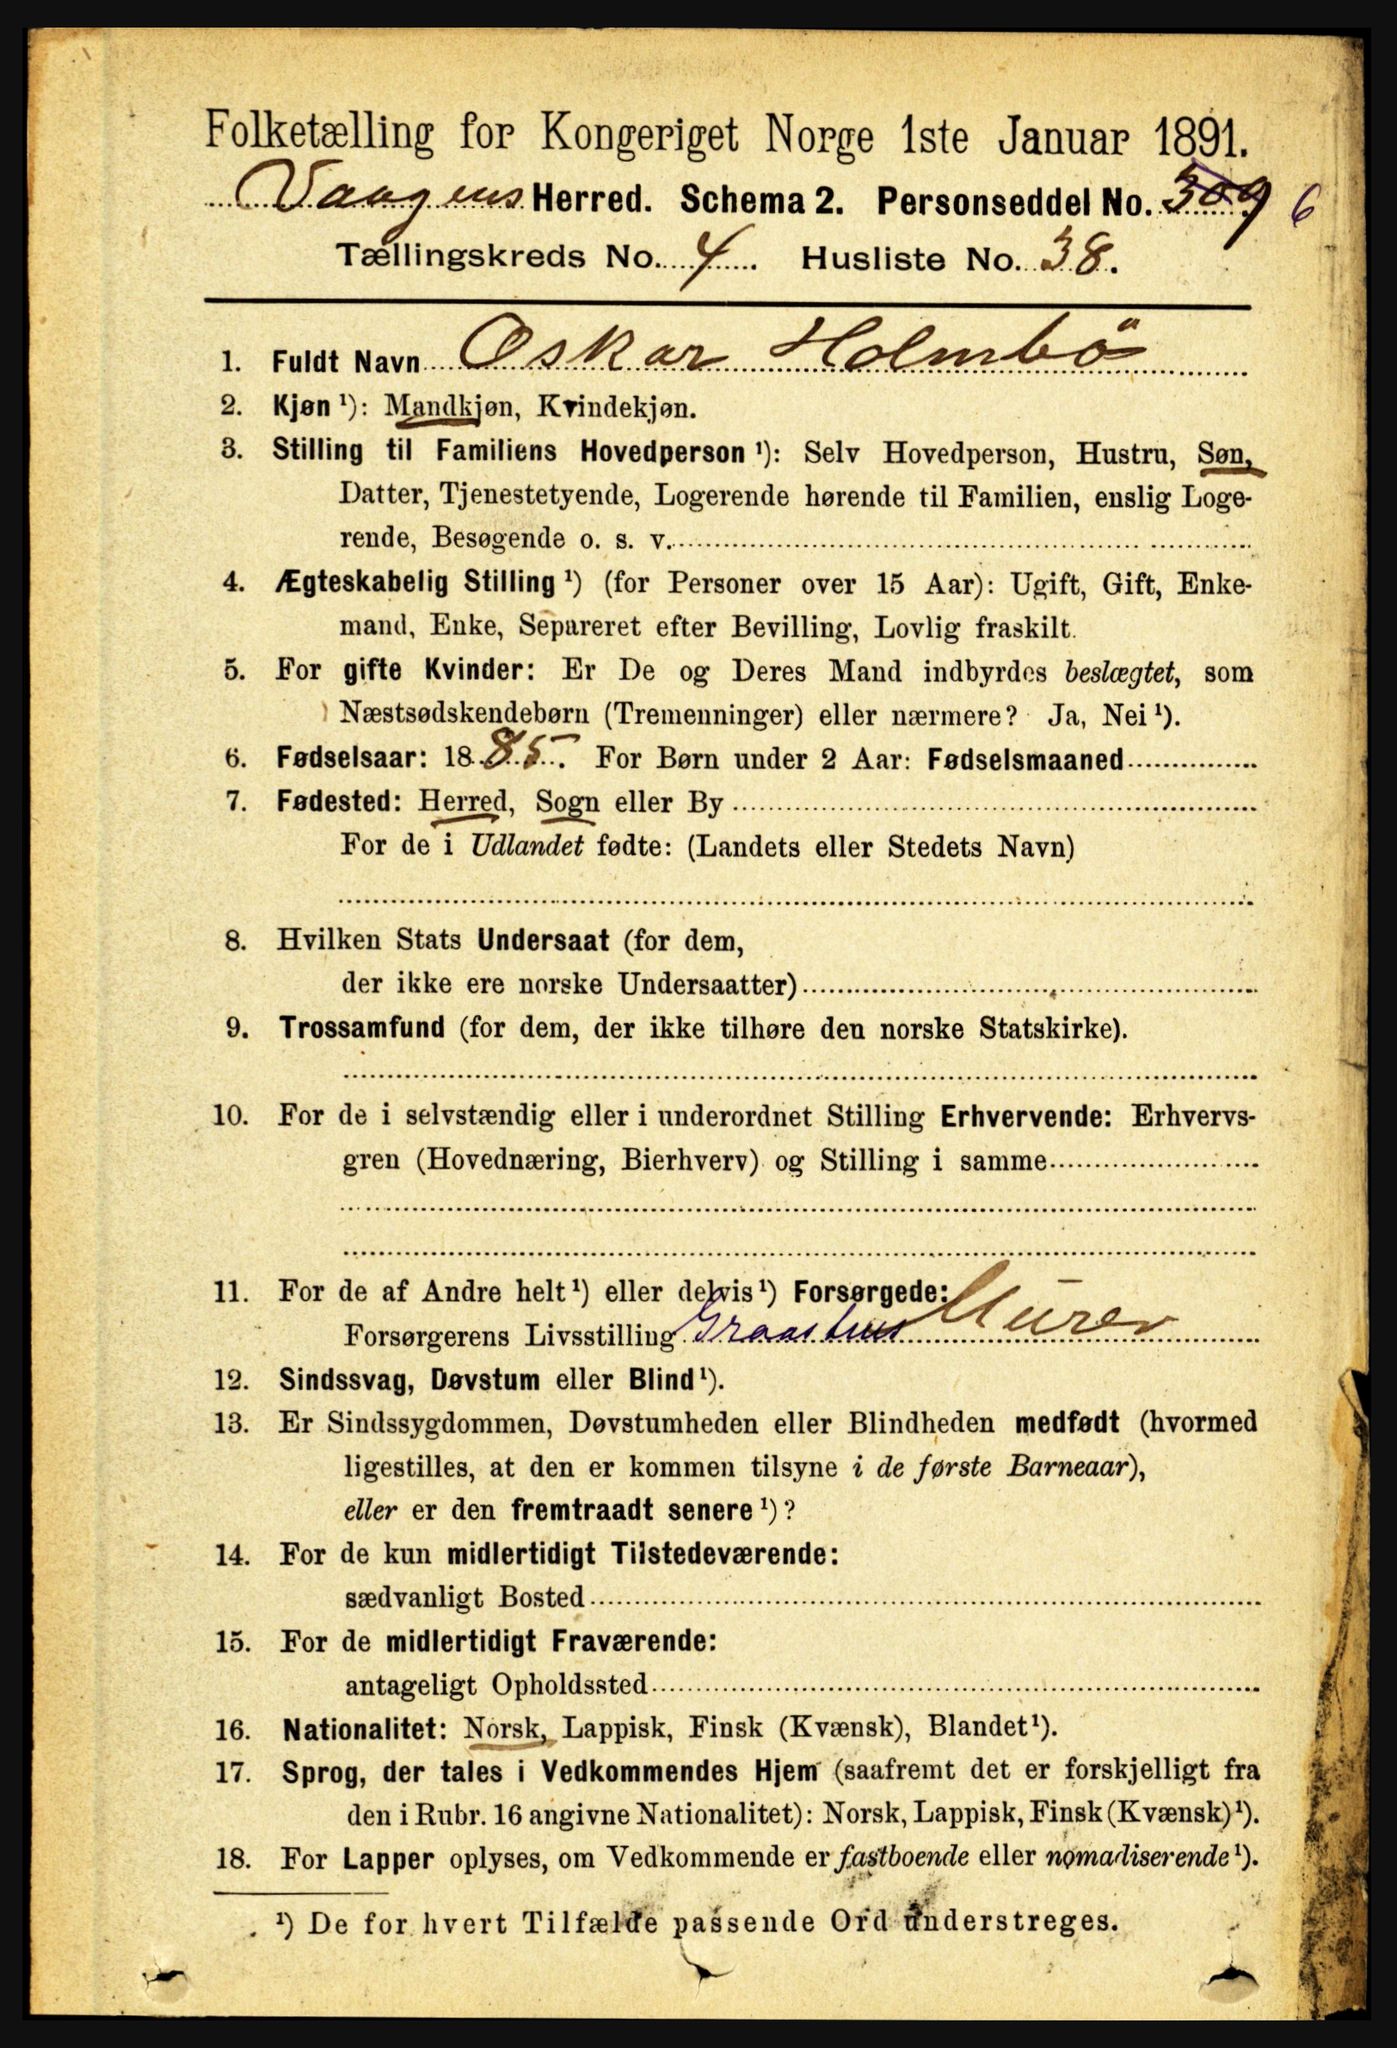 Folketælling for Kongeriget Norge 1ste Januar 1891.
Vaagens Herred. Schema 2. Personseddel No. 309 6
Tællingskreds No. 4. Husliste No. 38.
1. Fuldt Navn Oskar Holmbö
2. Kjøn ¹): Mandkjøn, Kvindekjøn.
3. Stilling til Familiens Hovedperson ¹): Selv Hovedperson, Hustru, Søn,
Datter, Tjenestetyende, Logerende hørende til Familien, enslig Loge-
rende, Besøgende o. s. v.
4. Ægteskabelig Stilling ¹) (for Personer over 15 Aar): Ugift, Gift, Enke-
mand, Enke, Separeret efter Bevilling, Lovlig fraskilt.
5. For gifte Kvinder: Er De og Deres Mand indbyrdes beslægtet, som
Næstsødskendebørn (Tremenninger) eller nærmere? Ja, Nei ¹).
6. Fødselsaar: 1885. For Børn under 2 Aar: Fødselsmaaned
7. Fødested: Herred, Sogn eller By
For de i Udlandet fødte: (Landets eller Stedets Navn)
8. Hvilken Stats Undersaat (for dem,
der ikke ere norske Undersaatter)
9. Trossamfund (for dem, der ikke tilhøre den norske Statskirke).
10. For de i selvstændig eller i underordnet Stilling Erhvervende: Erhvervs-
gren (Hovednæring, Bierhverv) og Stilling i samme
11. For de af Andre helt ¹) eller delvis ¹) Forsørgede:
Forsørgerens Livsstilling Graastens Murer
12. Sindssvag, Døvstum eller Blind ¹).
13. Er Sindssygdommen, Døvstumheden eller Blindheden medfødt (hvormed
ligestilles, at den er kommen tilsyne i de første Barneaar),
eller er den fremtraadt senere ¹)?
14. For de kun midlertidigt Tilstedeværende:
sædvanligt Bosted
15. For de midlertidigt Fraværende:
antageligt Opholdssted
16. Nationalitet: Norsk, Lappisk, Finsk (Kvænsk), Blandet ¹).
17. Sprog, der tales i Vedkommendes Hjem (saafremt det er forskjelligt fra
den i Rubr. 16 angivne Nationalitet): Norsk, Lappisk, Finsk (Kvænsk) ¹).
18. For Lapper oplyses, om Vedkommende er fastboende eller nomadiserende ¹).
¹) De for hvert Tilfælde passende Ord understreges.